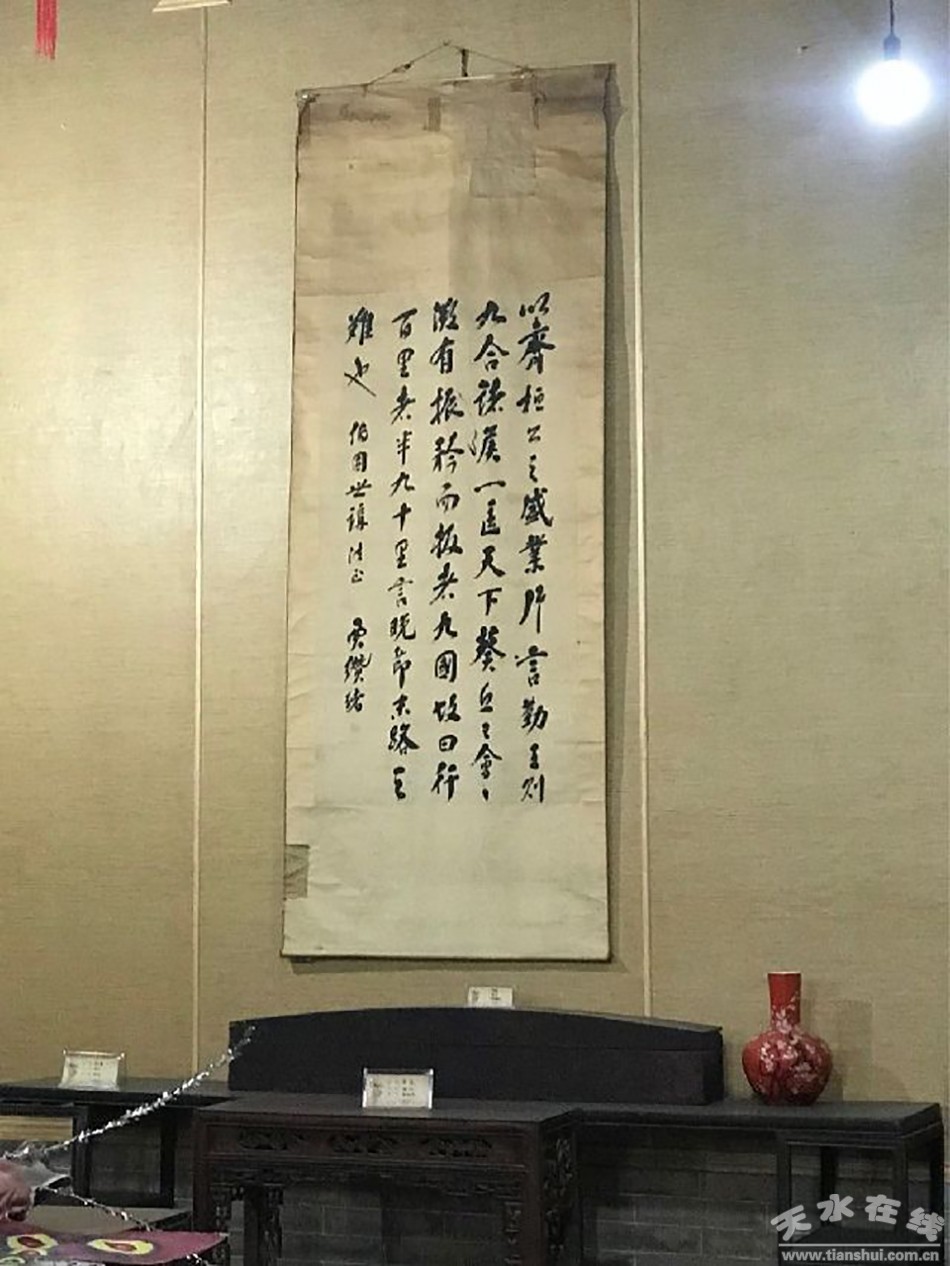 以齊桓公之盛業片言勤王則
九合諸侯一匡天下葵丘之會
微有振矜而叛者九國故曰行
百里者半九十里言晚節末路之
難也 伯世講法正 賈纘緒
天水在线
www.tianshui.com.cn